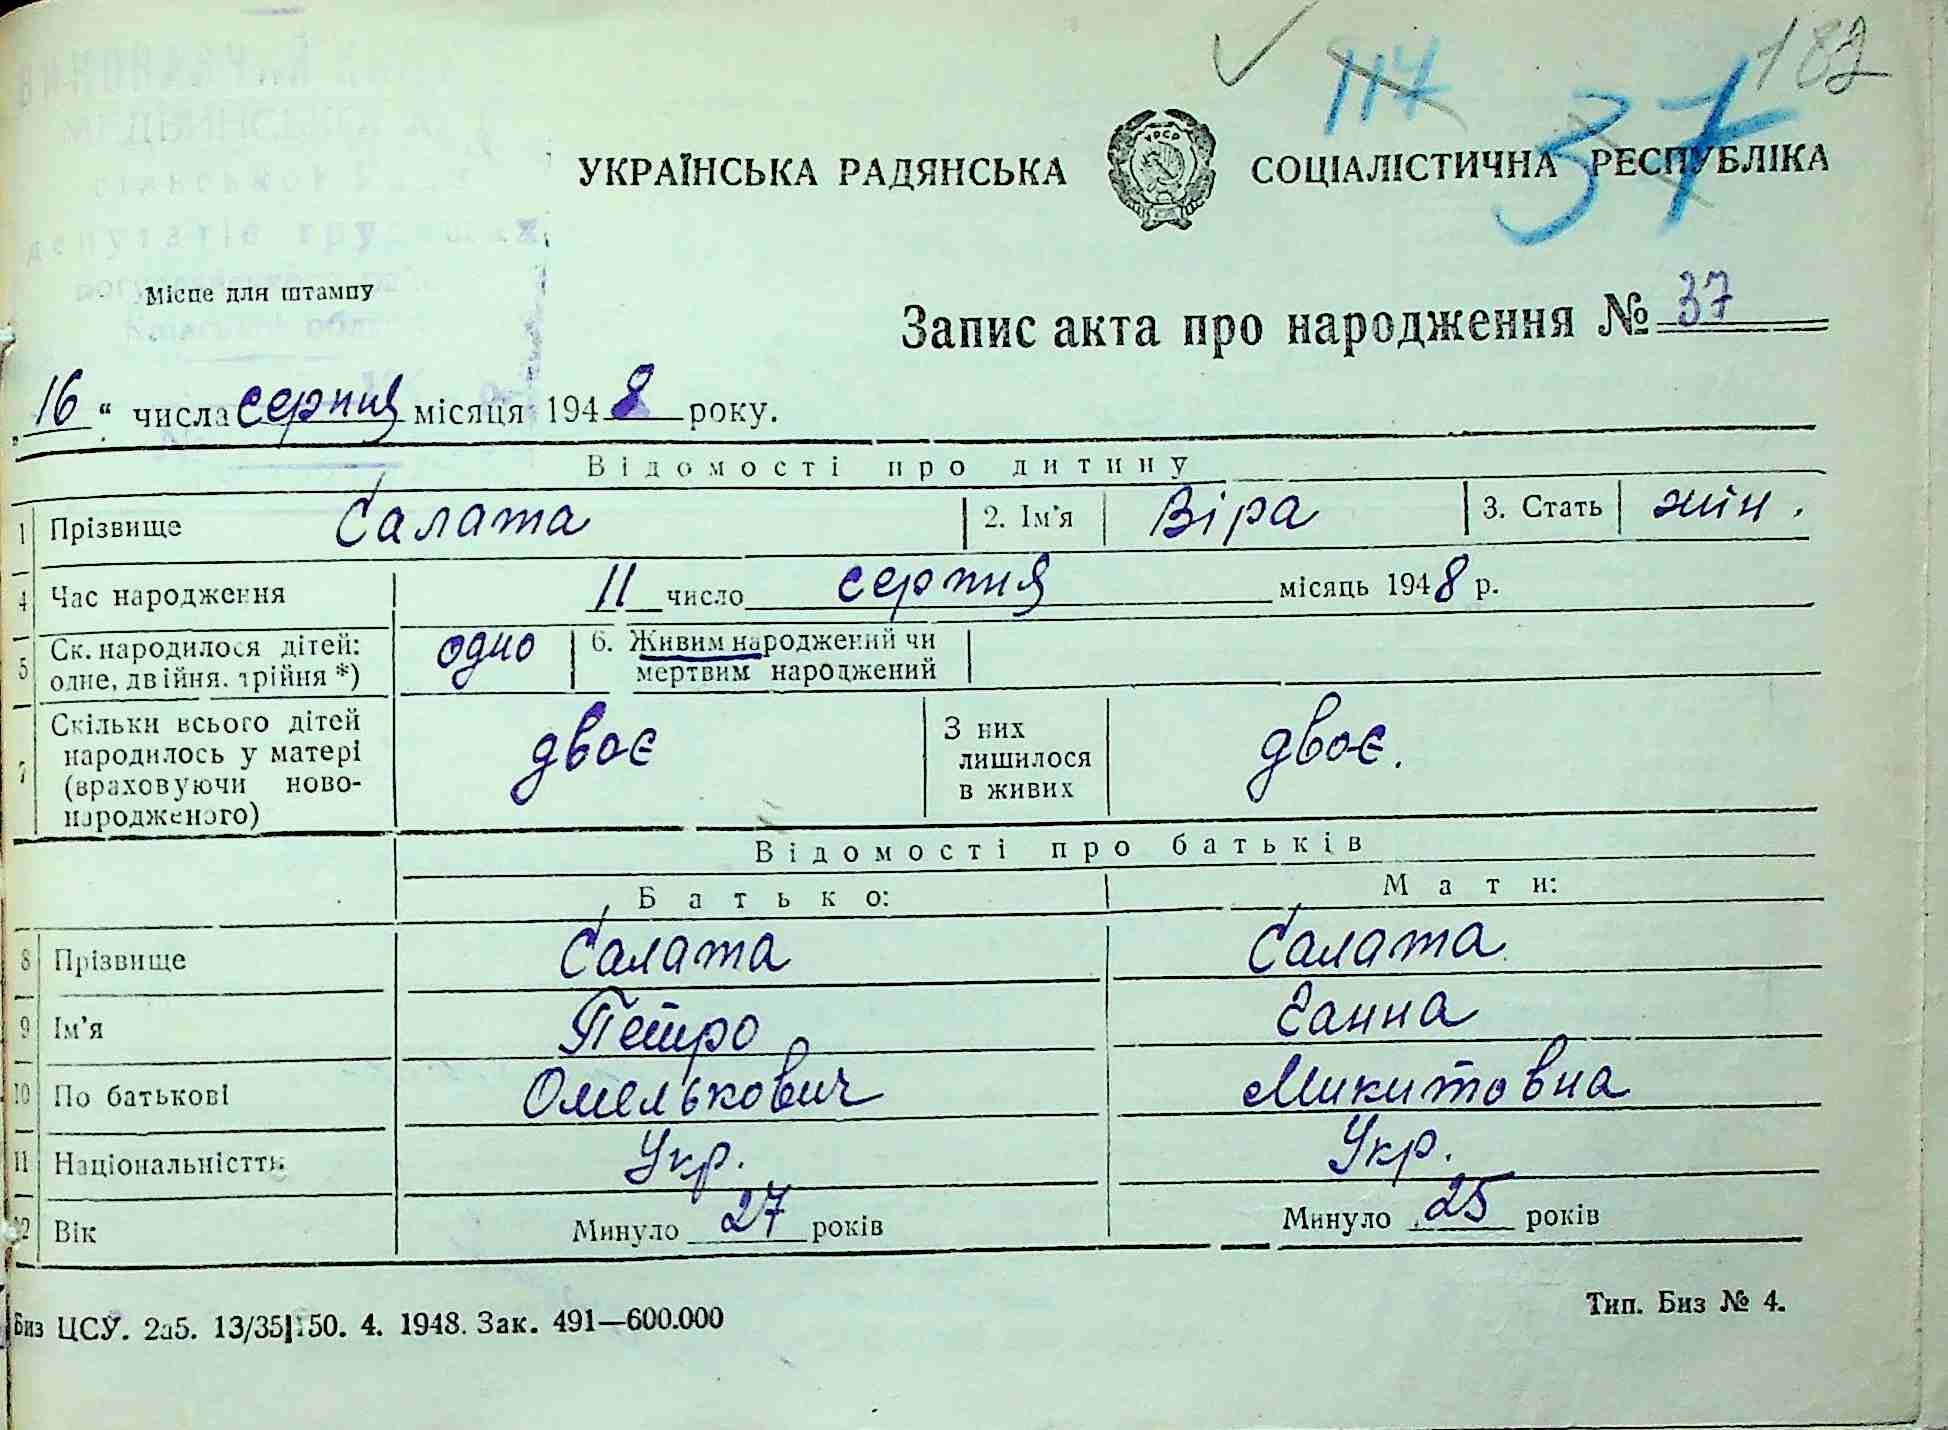 182
117
37
УКРАЇНСЬКА РАДЯНСЬКА СОЦІАЛІСТИЧНА РЕСПУБЛІКА
УРСР
МЕДВИНСЬКА
депутатів трудящих
Місце для штампу
Запис акта про народження № 37
„16“ числа серпня місяця 1948 року.
Відомості про дитину
1 Прізвище Салата 2. Ім'я Віра 3. Стать жін.
4 Час народження 11 число серпня місяць 1948 р.
5 Ск. народилося дітей: одне, двійня, трійня *) одно 6. Живим народжений чи мертвим народжений
7 Скільки всього дітей народилось у матері (враховуючи ново-народженого) двоє З них лишилося в живих двоє.
Відомості про батьків
Батько: Мати:
8 Прізвище Салата Салата
9 Ім'я Петро Ганна
10 По батькові Омелькович Микитовна
11 Національністть Укр. Укр.
12 Вік Минуло 27 років Минуло 25 років
Биз ЦСУ. 2а5. 13/35 150. 4. 1948. Зак. 491—600.000 Тип. Биз № 4.